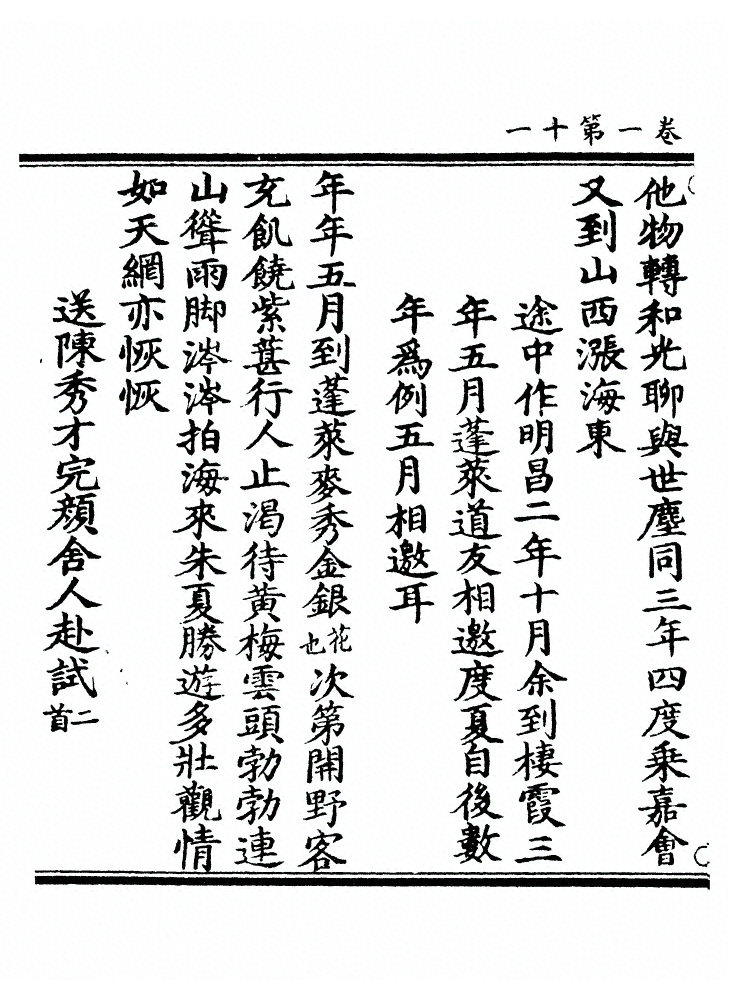 卷一第十一
他物轉和光聊與世塵同三年四度乘嘉會
又到山西漲海東
途中作明昌二年十月余到棲霞三
年五月蓬萊道友相邀度夏自後數
年爲例五月相邀耳
年年五月到蓬萊麥秀金銀花也次第開野客
充飢饒紫葚行人止渴待黃梅雲頭勃勃連
山聳雨脚涔涔拍海來朱夏勝遊多壯觀情
如天網亦恢恢
送陳秀才完顏舍人赴試二首